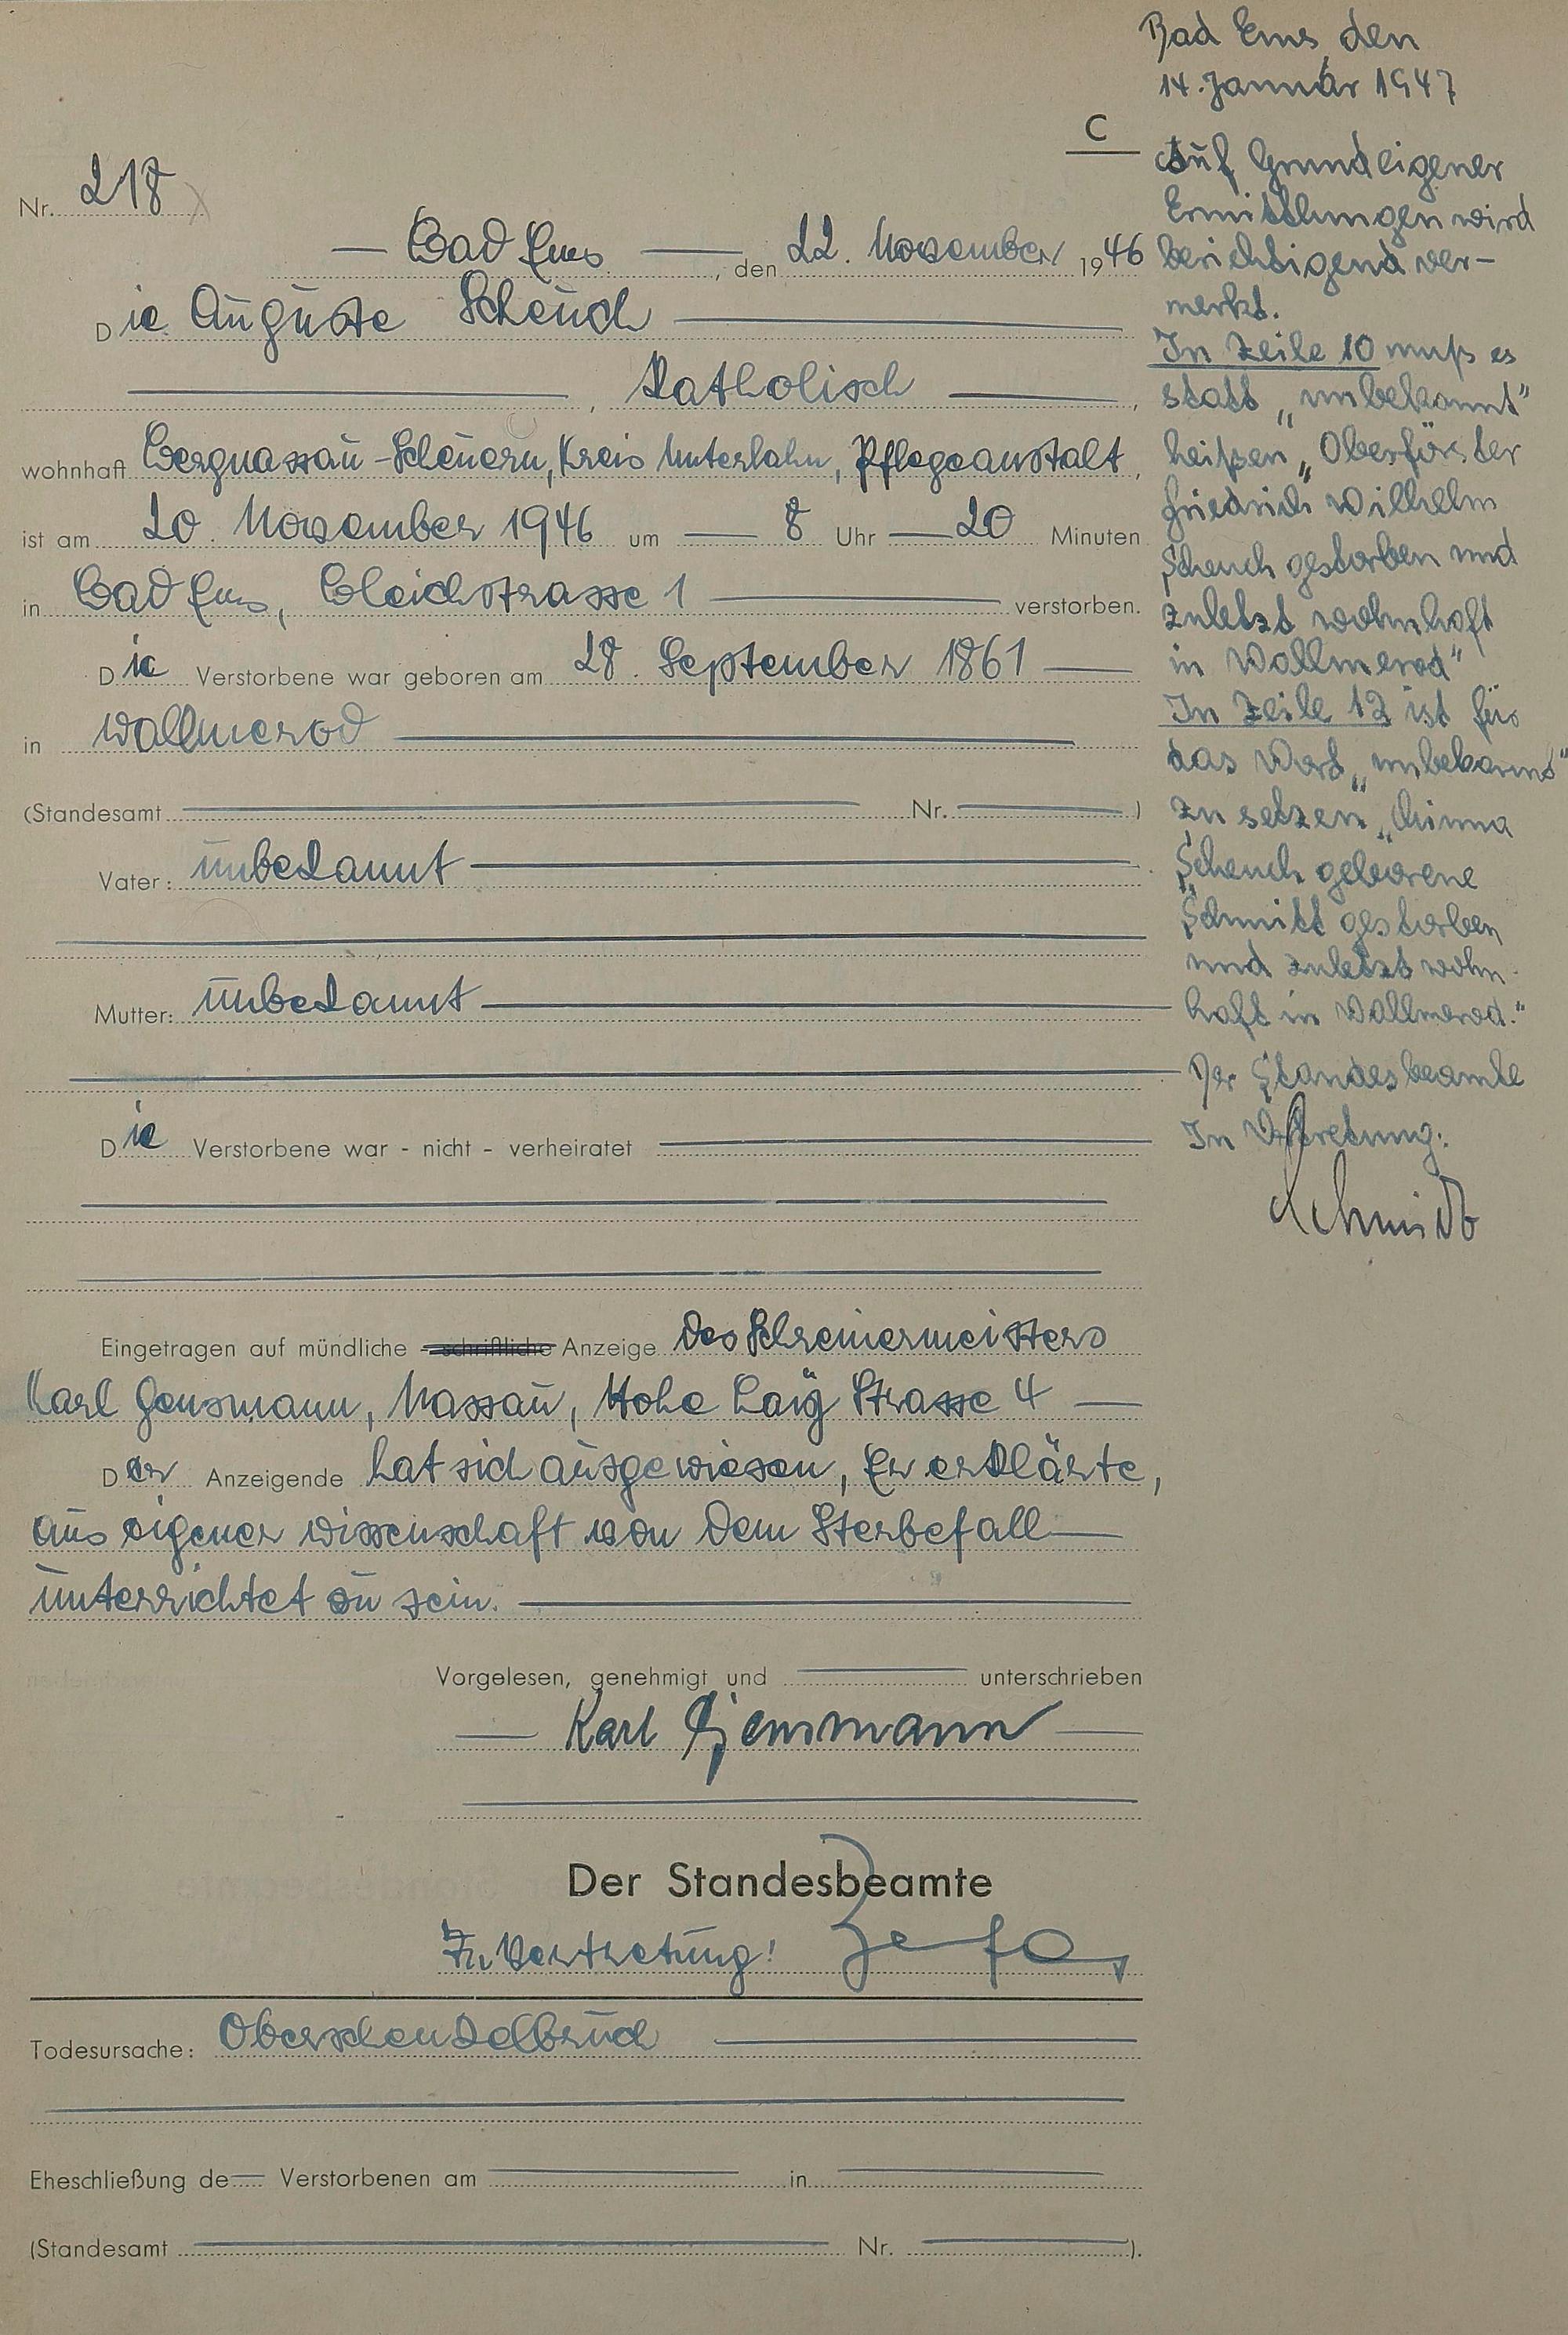 C
Nr. 218
Bad Ems, den 22. November 1946
Die Auguste Scheuch
, Katholisch,
wohnhaft Bergnassau-Scheuern, Kreis Unterlahn, Pflegeanstalt,
ist am 20. November 1946 um 8 Uhr 20 Minuten
in Bad Ems, Bleichstrasse 1 verstorben.
Die Verstorbene war geboren am 28. September 1861
in Wallmerod
(Standesamt Nr. )
Vater: unbekannt
Mutter: unbekannt
Die Verstorbene war - nicht - verheiratet
Eingetragen auf mündliche - schriftliche Anzeige des Schreinermeisters
Karl Gensmann, Nassau, Hohe Lay Strasse 4
Der Anzeigende hat sich ausgewiesen, Er erklärte,
aus eigener Wissenschaft von dem Sterbefall
unterrichtet zu sein.
Vorgelesen, genehmigt und unterschrieben
Karl Gensmann
Der Standesbeamte
In Vertretung!
Todesursache: Oberschenkelbruch
Eheschließung de Verstorbenen am in
(Standesamt Nr. ).
Bad Ems, den
14. Januar 1947
Auf Grund eigener
Ermittlungen wird
berichtigend ver-
merkt.
In Zeile 10 muß es
statt „unbekannt"
heißen „Oberförster
Friedrich Wilhelm
Scheuch gestorben und
zuletzt wohnhaft
in Wallmerod"
In Zeile 12 ist für
das Wort „unbekannt"
zu setzen „Minna
Scheuch geborene
Schmitt gestorben
und zuletzt wohn-
haft in Wallmerod."
Der Standesbeamte
In Vertretung:
Schmidt